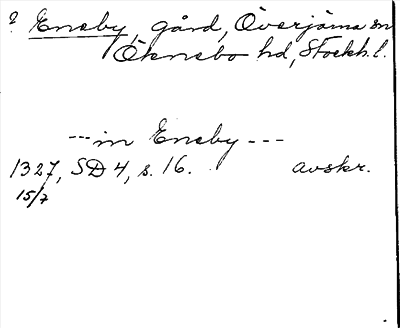 ? Eneby, gård, Överjärna sn
Öknebo hd, Stockh. l.
--- in Eneby ---
1327, SD 4, s. 16. avskr.
15/7